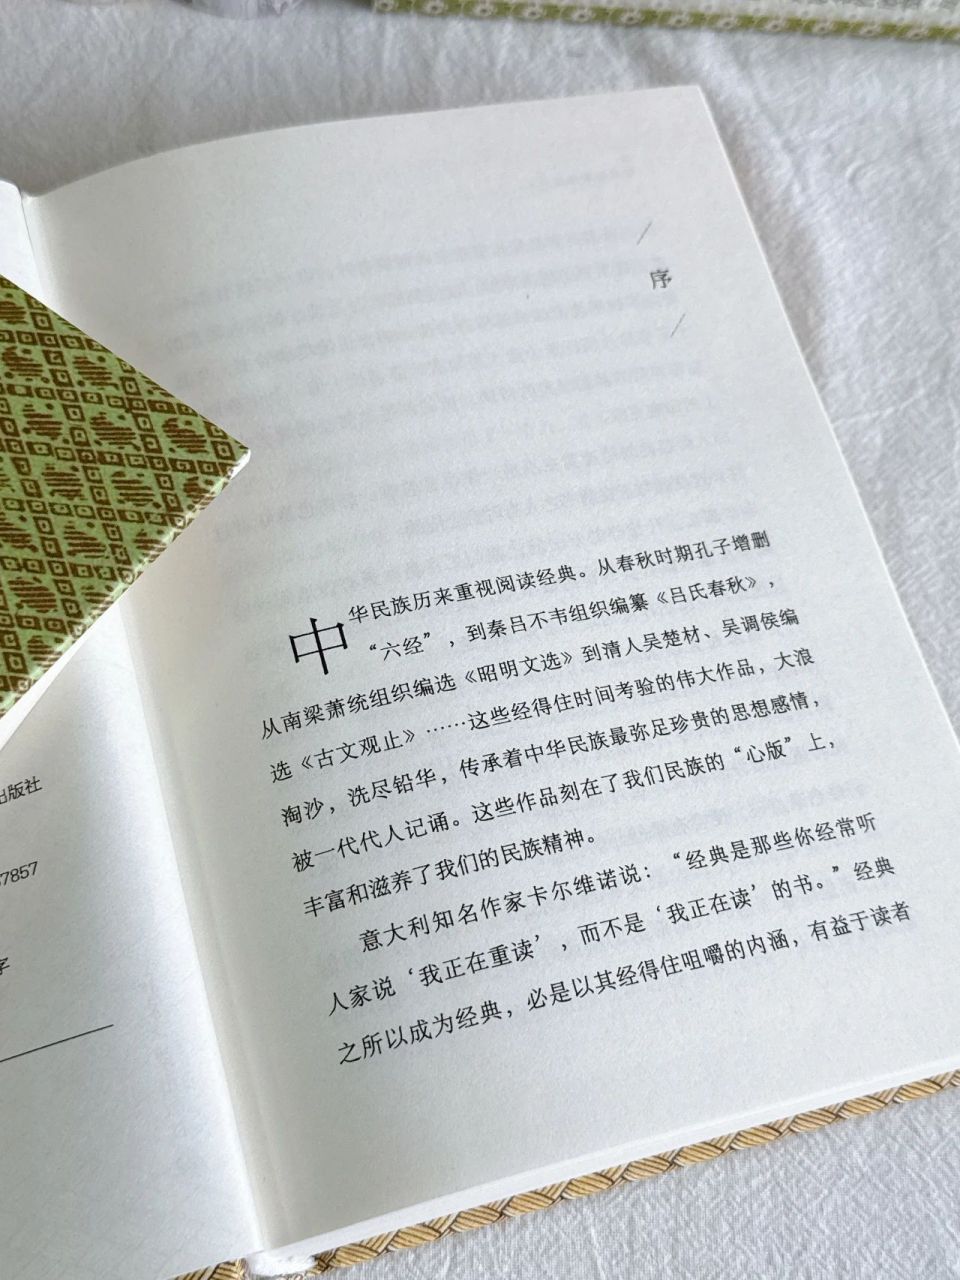 出版社
7857
字
序
中华民族历来重视阅读经典。从春秋时期孔子增删
“六经”，到秦吕不韦组织编纂《吕氏春秋》，
从南梁萧统组织编选《昭明文选》到清人吴楚材、吴调侯编
选《古文观止》……这些经得住时间考验的伟大作品，大浪
淘沙，洗尽铅华，传承着中华民族最弥足珍贵的思想感情，
被一代代人记诵。这些作品刻在了我们民族的“心版”上，
丰富和滋养了我们的民族精神。
意大利知名作家卡尔维诺说：“经典是那些你经常听
人家说‘我正在重读’，而不是‘我正在读’的书。”经典
之所以成为经典，必是以其经得住咀嚼的内涵，有益于读者